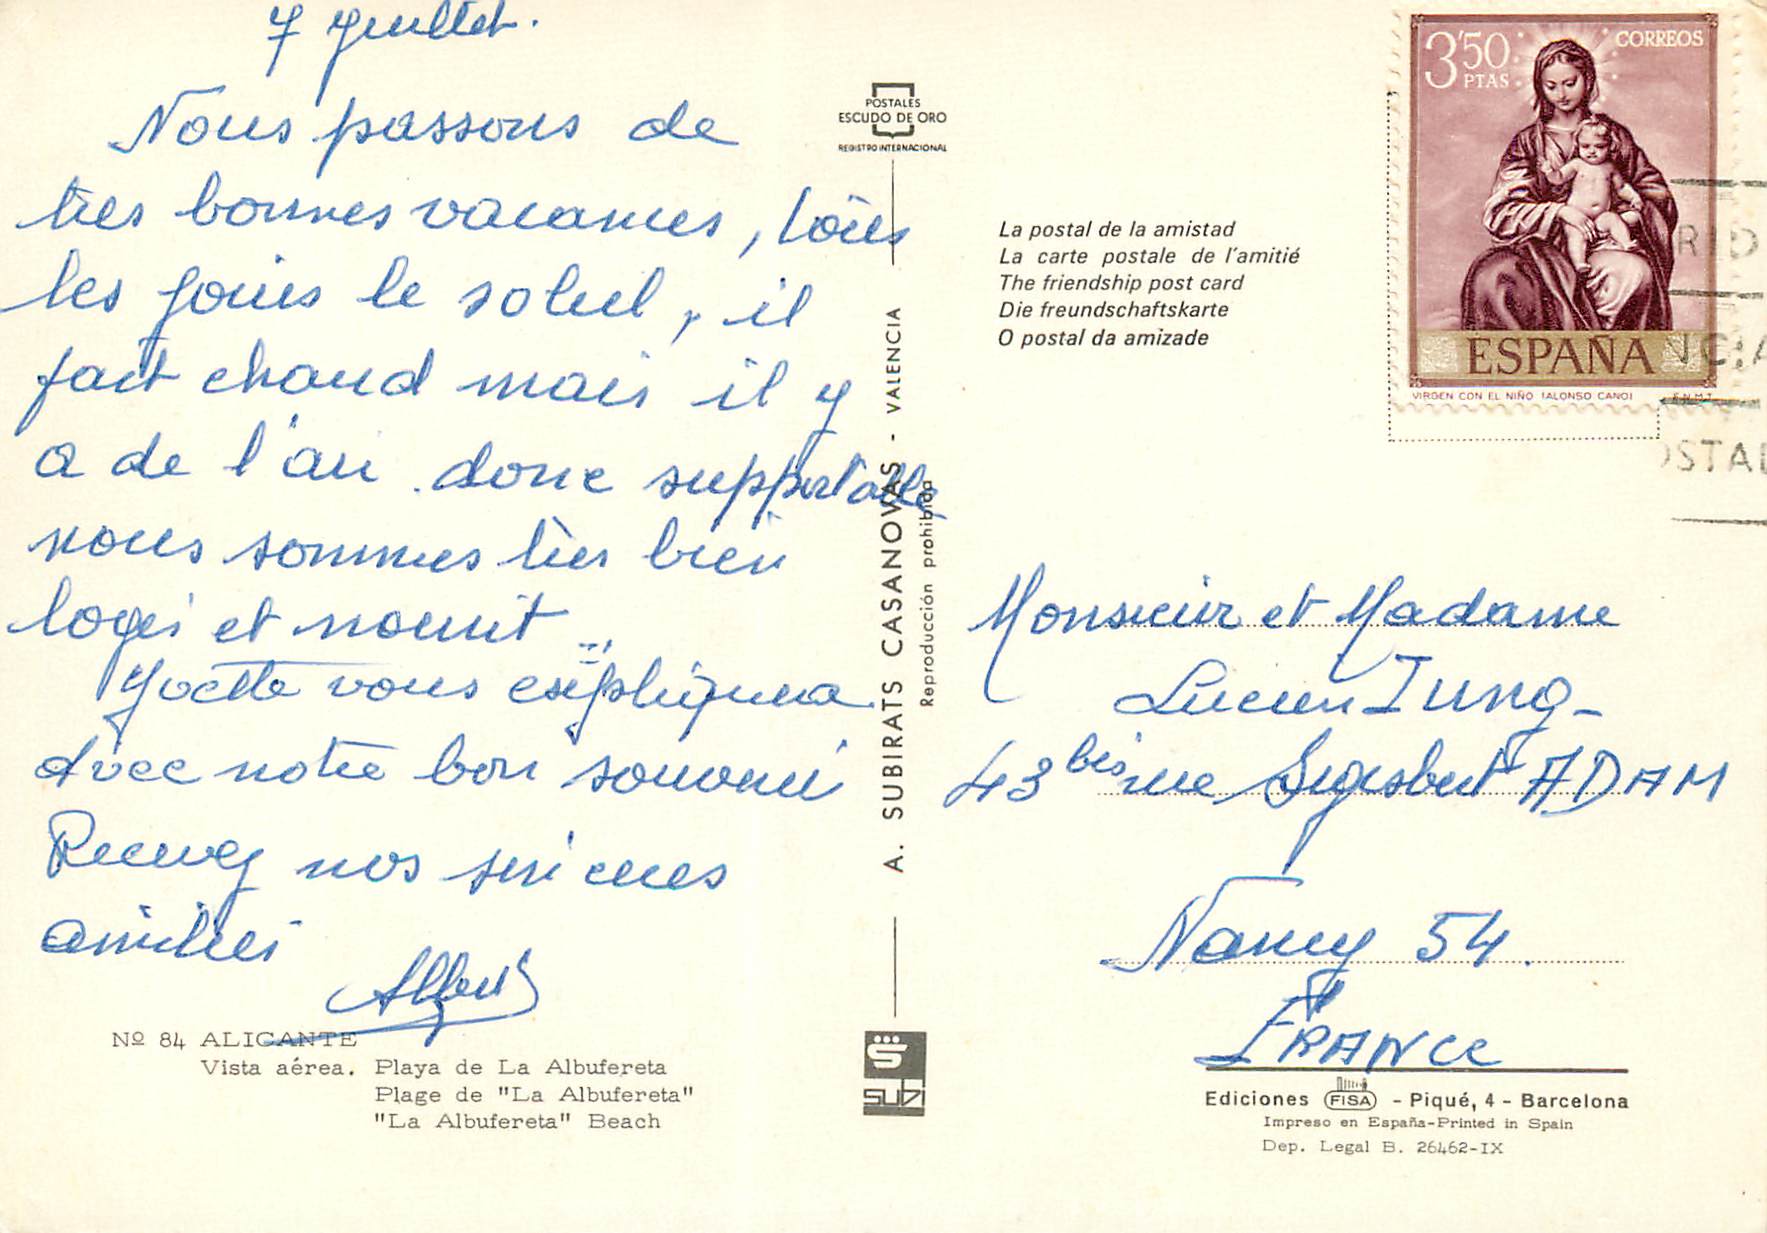 7 Juillet.
Nous passons de
très bonnes vacances, tous
les jours le soleil, il
fait chaud mais il y
a de l'air donc supportable
nous sommes très bien
logés et nourrit...
Yvette vous expliquera
avec notre bon souvenir
Recevez nos sincères
amitiés
Albert
Nº 84 ALICANTE
Vista aérea. Playa de La Albufereta
Plage de "La Albufereta"
"La Albufereta" Beach
POSTALES
ESCUDO DE ORO
REGISTRO INTERNACIONAL
A. SUBIRATS CASANOVAS - VALENCIA
Reproducción prohibida
subi
La postal de la amistad
La carte postale de l'amitié
The friendship post card
Die freundschaftskarte
O postal da amizade
3'50 PTAS
CORREOS
ESPAÑA
VIRGEN CON EL NIÑO (ALONSO CANO) F.N.M.T.
OSTAL
Monsieur et Madame
Lucien Iung_
43 bis rue Sigisbert ADAM
Nancy 54.
FRANCE
Ediciones FISA - Piqué, 4 - Barcelona
Impreso en España-Printed in Spain
Dep. Legal B. 26462-IX